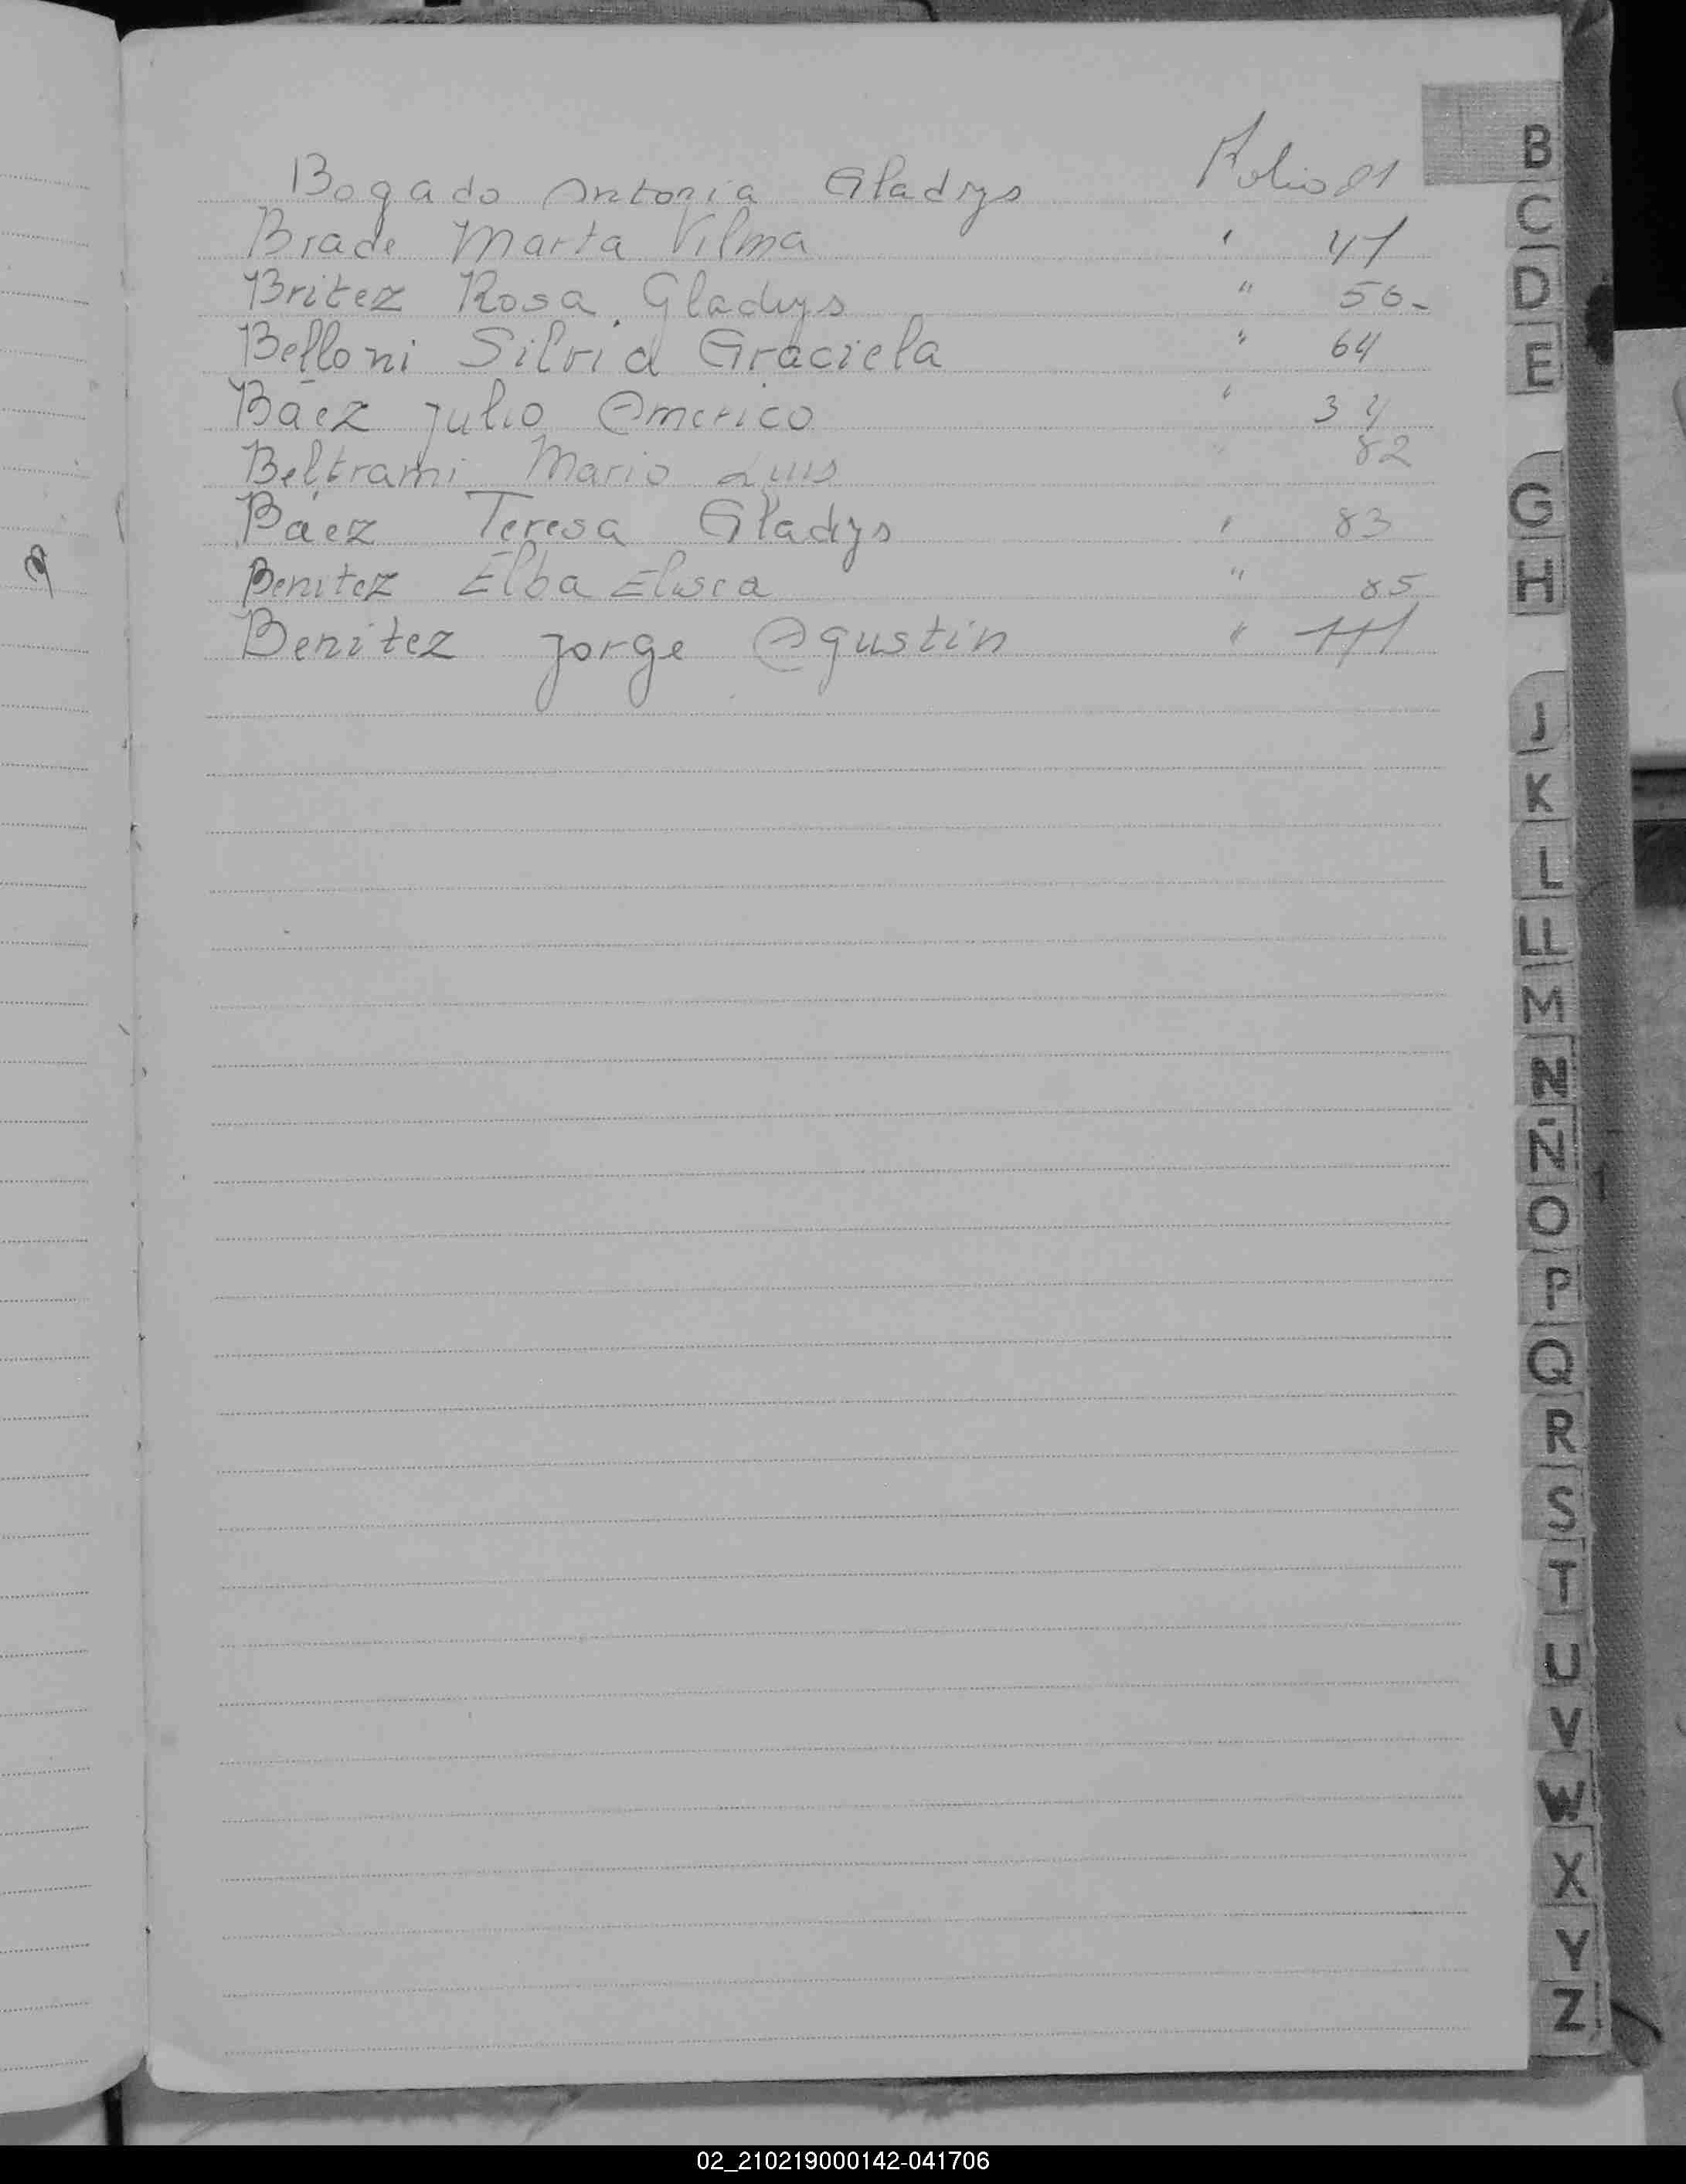 Bogado Antonia Gladys Folio 01
Brade Marta Vilma " 41
Britez Rosa Gladys " 56-
Belloni Silvia Graciela " 64
Báez Julio Americo " 34
Beltrami Mario Luis " 82
Báez Teresa Gladys " 83
Benitez Elba " 85
Benitez Jorge Agustin " 111
B
C
D
E
G
H
J
K
L
LL
M
N
Ñ
O
P
Q
R
S
T
U
V
W
X
Y
Z
02_210219000142-041706